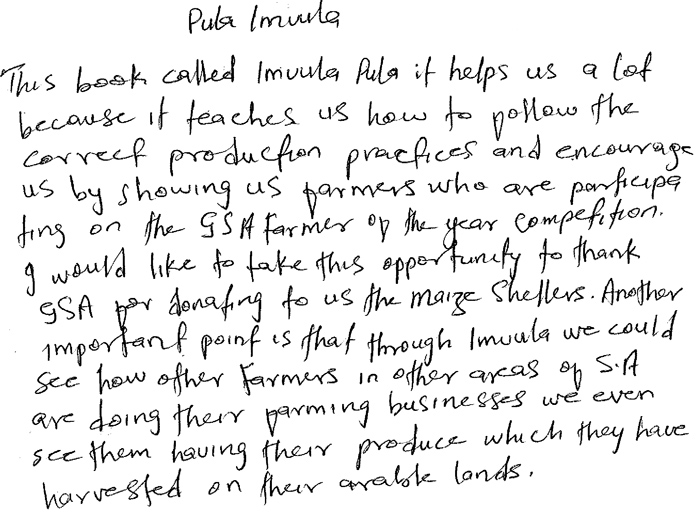 Pula Imvula
This book called Imvula Pula it helps us a lot
because it teaches us how to follow the
correct production practices and encourage
us by showing us farmers who are participa
ting on the GSA Farmer of the year competition.
I would like to take this opportunity to thank
GSA for donating to us the maize Shellers. Another
important point is that through Imvula we could
see how other Farmers in other areas of S.A
are doing their farming businesses we even
see them having their produce which they have
harvested on their arable lands.